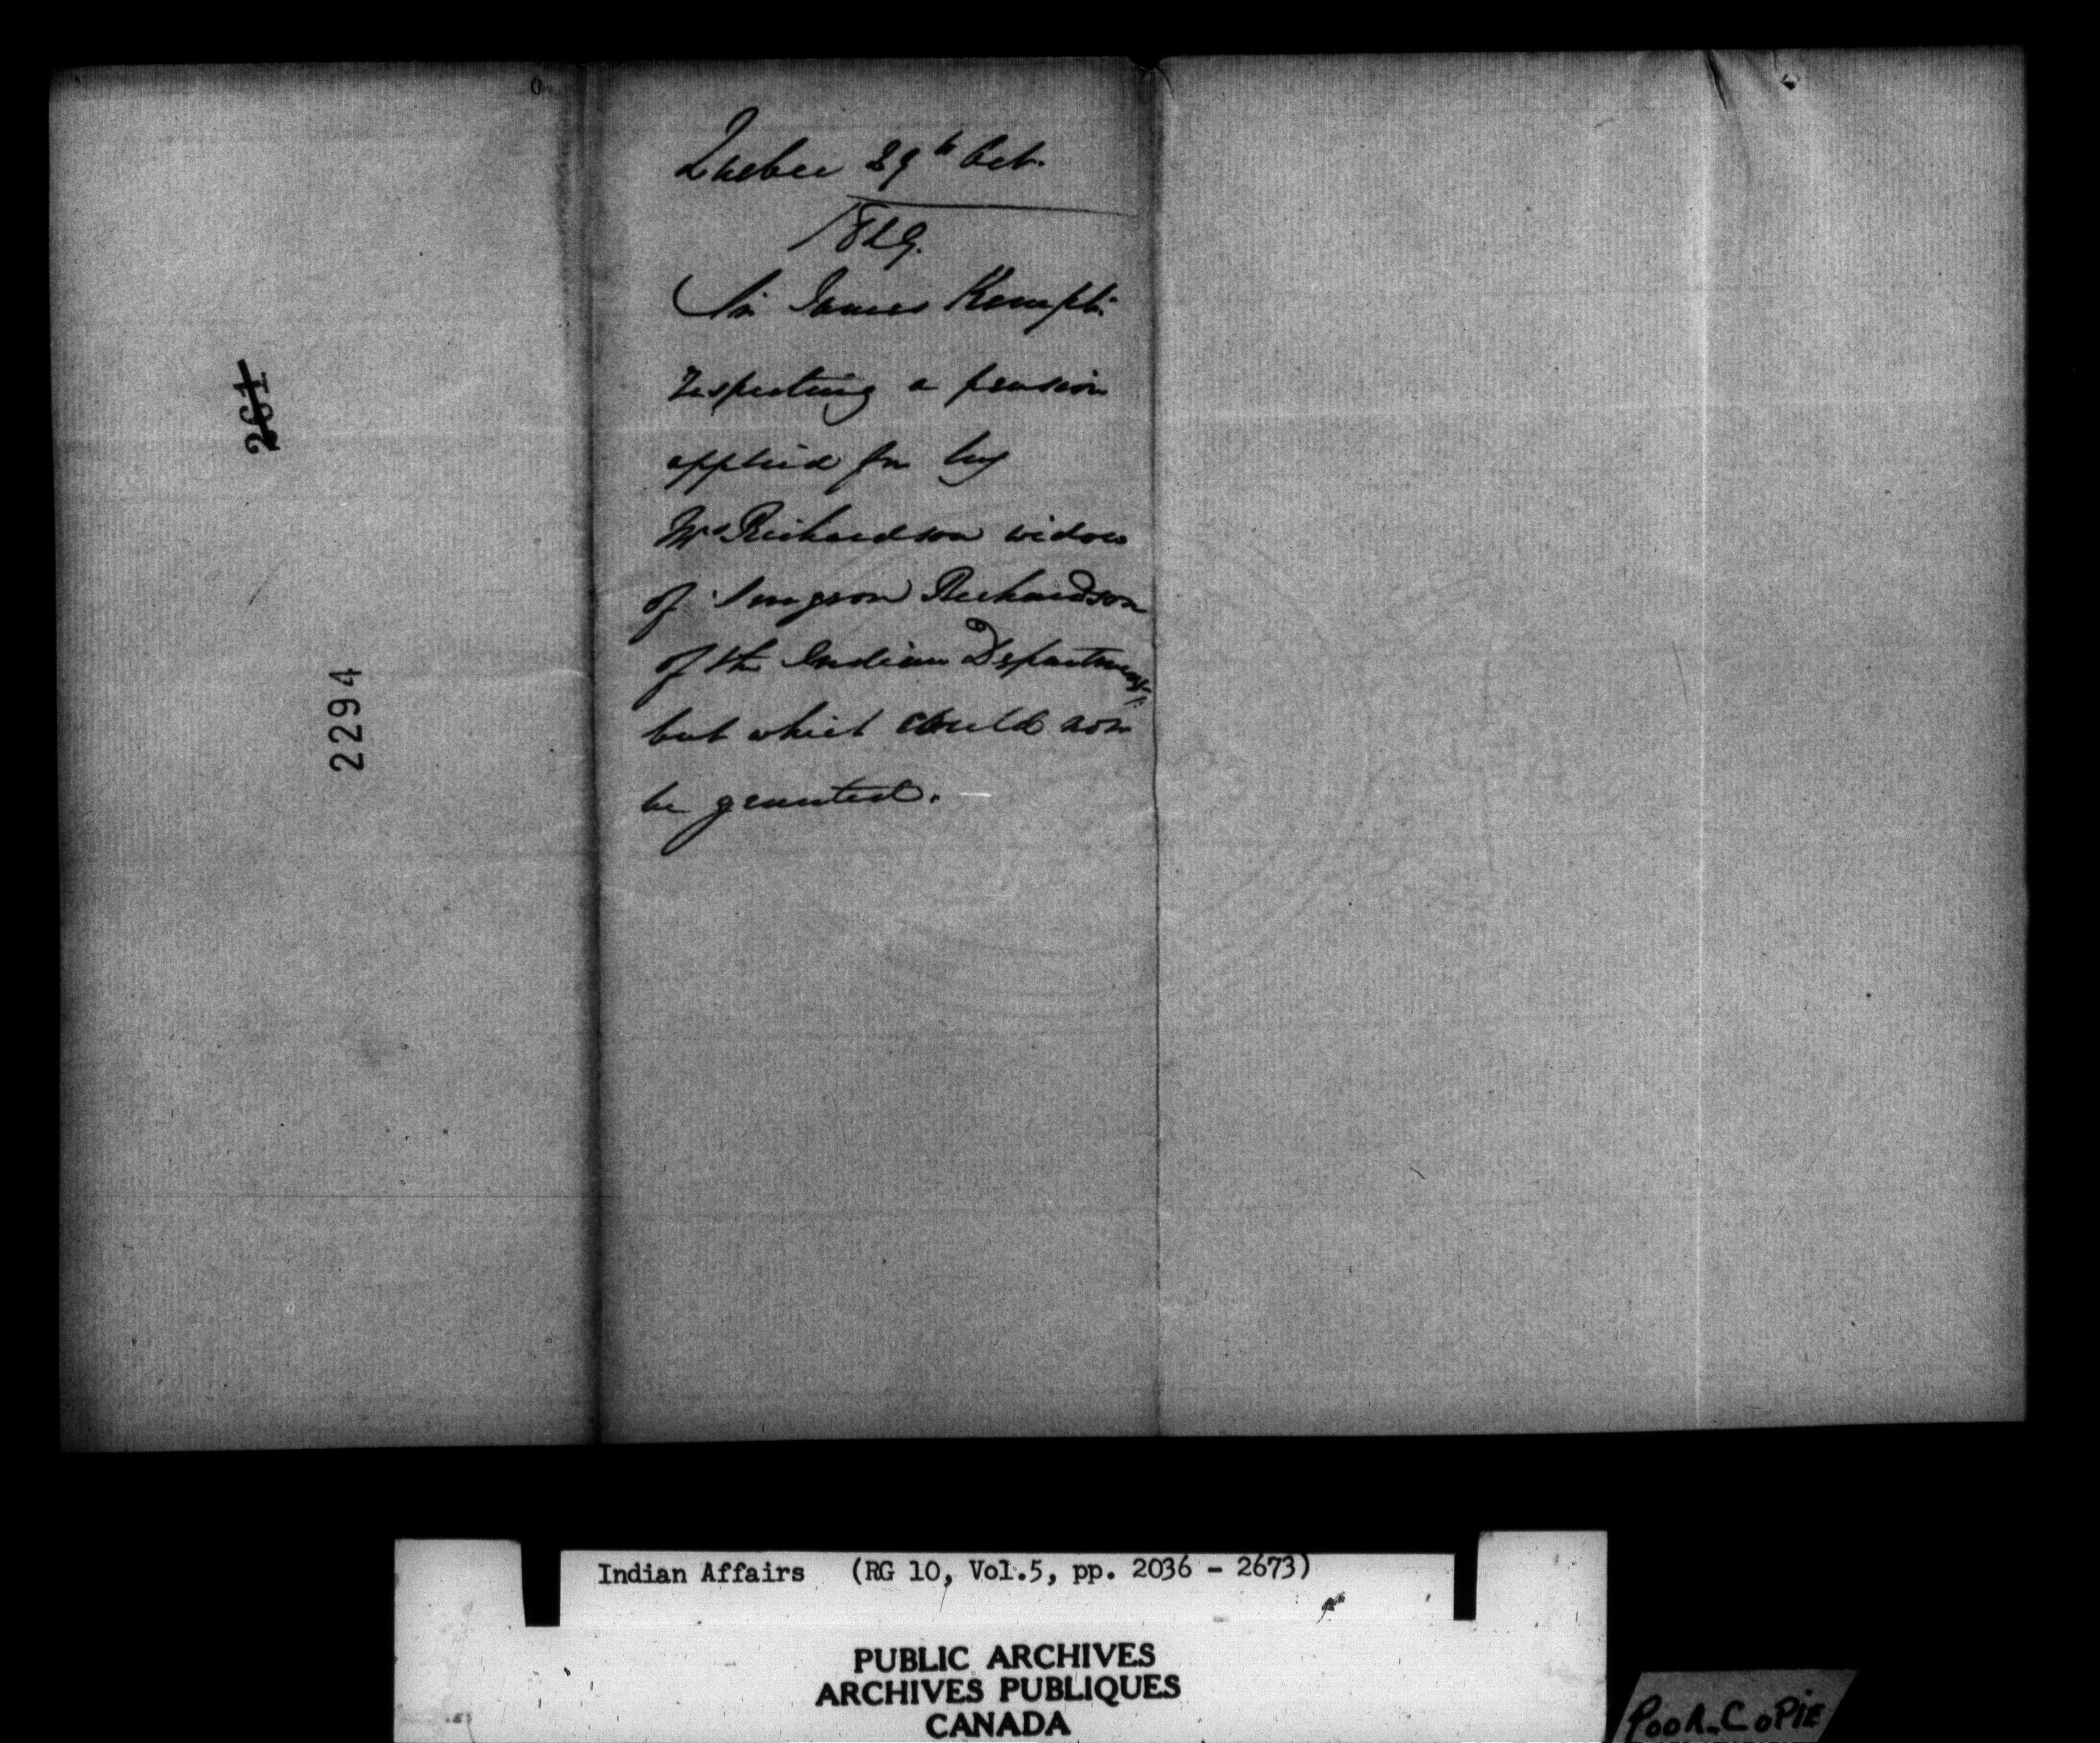 261
2294
Quebec 29th Oct.
1829.
Sir James Kempt.
respecting a pension
applied for by
Mrs Richardson widow
of Surgeon Richardson
of the Indian Department,
but which could not
be granted.
Indian Affairs (RG 10, Vol.5, pp. 2036 - 2673)
PUBLIC ARCHIVES
ARCHIVES PUBLIQUES
CANADA
POOR COPIE